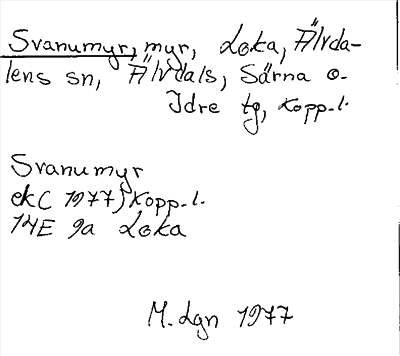 Svanumyr, myr, Loka, Älvda-
lens sn, Älvdals, Särna o.
Idre tg, Kopp. l.
Svanumyr
ekC 1977) Kopp. l.
14E 9a Loka
M. Lgn 1977